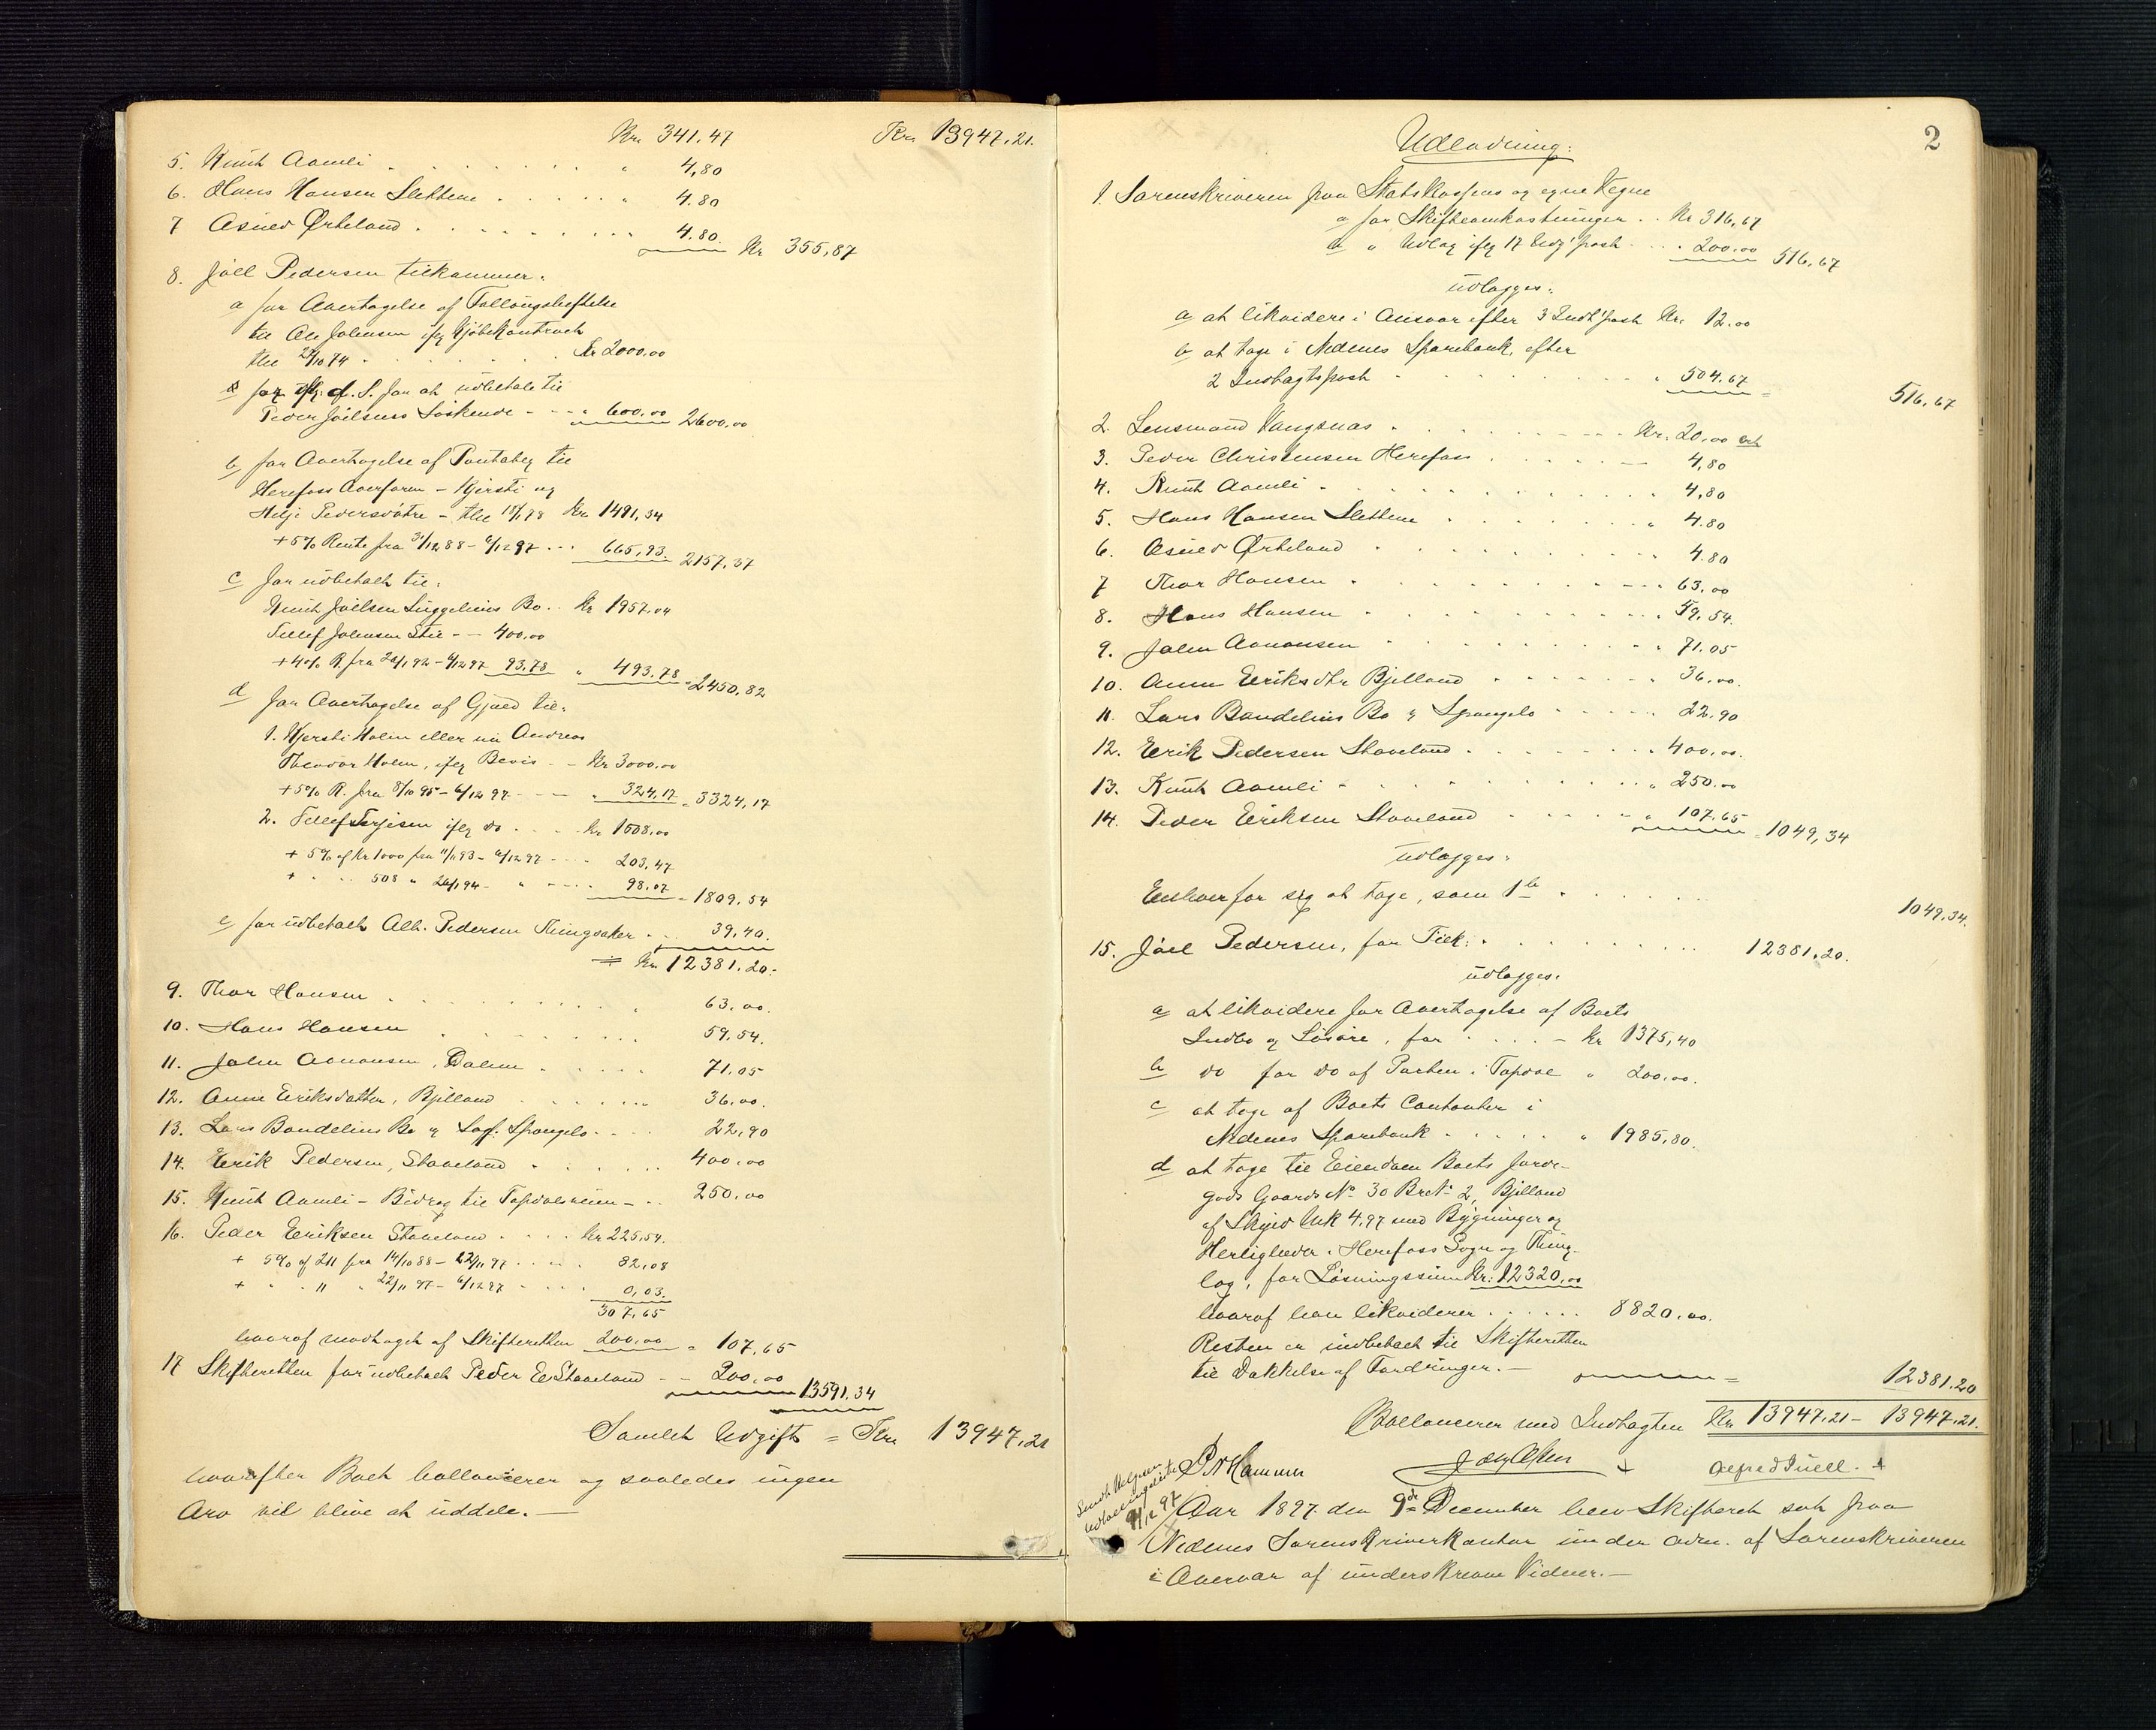 Kr. 341.47 Kr. 13947,21.
5. Knut Aamli . . . . . " 4,80
6. Hans Hansen Slettene . . . . . " 4.80
7 Asuld Örteland . . . . . 4.80. Kr 355,87
8. Joël Pedersen tilkommer:
a for Overtagelse af Follaugsheftelse
til Ole Johnsen ifg Kjöbekontrakt
thl 24/10 74 . . . . Kr 2000.00
for ifg. d. S. for at udbetale til
Peder Joëlsens Söskende - - - " 600.00 2600.00
b for Overtagelse af Pantobeg til
Herefoss Overform - Kjersti og
Helje Pedersdötre - thl 18/1 78 Kr 1491,34
+ 5% Rente fra 31/12 88 - 6/12 97 . . . 665,93. 2157.37
c for udbetalt til:
Knut Joëlsen Luggelins Bo . . Kr 1957.04
Tellef Johnsen Stie - - 400.00
+ 4% R. fra 26/1 92 - 6/12 97 93.78 " 493.78 = 2450,82
d for Overtagelse af Gjæld til:
1. Kjersti Holm eller nu Andreas
Theodor Holm, ifg Bevis - - Kr 3000.00
+ 5% R. fra 8/10 95 - 6/12 97 - - - - " 324,17 = 3324,17
2. Tellef Terjesen ifg do . . . . Kr 1508.00
+ 5% af Kr 1000 fra 11/11 93 - 6/12 97 - - - 203,47
+ " . . 508 " 26/1 94 - " - - - - 98.07 = 1809.54
e for udbetalt Alb. Pedersen Thingsaker . . . 39.40.
Kr. 12381.20.
9. Thor Hansen . . . . . 63.00.
10. Hans Hansen . . . . . 59.54.
11. John Aanonsen, Dalen . . . . . 71.05
12. Anne Eriksdatter, Bjelland . . . . . 36.00.
13. Lars Bandelins Bo v Sagf. Spangelo . . . . 22,90
14. Erik Pedersen, Staveland . . . . . 400.00
15. Knut Aamli - Bidrag til Topdalsveien - . . 250.00
16. Peder Eriksen Staveland . . . . Kr 225.54.
+ 5% af 211 fra 14/10 88 - 22/11 97 . . . . . 82,08
+ " . " 22/11 97 - 6/12 97 . . . . 0,03.
307.65
hvoraf modtaget af Skifteretten 200.00 = 107.65
17 Skifteretten for udbetalt Peder E. Staveland - - 200.00 13591.34
Samlet Udgift = Kr. 13947,21
hvorefter Boet ballancerer og saaledes ingen
Arv vil blive at uddele. —
2
Udlodning:
1. Sorenskriveren paa Statskassens og egne Vegne
a for Skifteomkostninger . . Kr 316,67
b " Udlæg ifg 17 Udg'post . . . . 200.00 516.67
udlægges:
a at likvidere i Ansvar efter 3 Indt'post Kr. 12.00
b at tage i Nedenes Sparebank, efter
2 Indtægtspost . . . . . " 504.67 = 516,67
2. Lensmand Vangsnæs . . . . . Kr. 20,00
3. Peder Christensen Herefoss . . . . . 4,80
4. Knut Aamli . . . . . " 4,80
5. Hans Hansen Slettene . . . . . " 4.80
6. Asuld Örteland . . . . . " 4.80
7 Thor Hansen . . . . . " 63.00
8. Hans Hansen . . . . . " 59,54.
9. John Aanonsen . . . . . " 71.05
10. Anne Eriksdtr Bjelland . . . . . " 36.00.
11. Lars Bandelins Bo v Spangelo . . . . . 22.90
12. Erik Pedersen Staveland . . . . . " 400.00.
13. Knut Aamli . . . . . " 250.00
14. Peder Eriksen Staveland . . . . . " 107.65 = 1049,34
udlægges:
Enhver for sig at tage, som 1b . . . . . 1049,34.
15. Joël Pedersen, for Tilk: . . . . . 12381.20.
udlægges:
a at likvidere for Overtagelse af Boets
Indbo og Lösöre, for . . . . - Kr 1375,40
b do for do af Parten i Topdal " 200.00.
c at tage af Boets Contanter i
Nedenes Sparebank . . . . . " 1985,80.
d at tage til Eiendom Boets Jorde-
gods Gaards No 30 Bres No 2, Bjelland
af Skyld Mk 4.97 med Bygninger og
Herligheder i Herefoss Sogn og Thing-
lag, for Lösningssum Kr: 12320.00
hvoraf han likviderer . . . . . . 8820.00.
Resten er indbetalt til Skifteretten
til Dækkelse af Fordringer. — = 12381.20
Ballancerer med Indtægten Kr. 13947,21 - 13947,21.
P. N. Hammer Alfred Tuell.
9/12 97
Aar 1897 den 9de December blev Skifteret sat paa
Nedenes Sorenskriverkontor under Adm. af Sorenskriveren
i Overvær af underskrevne Vidner. —